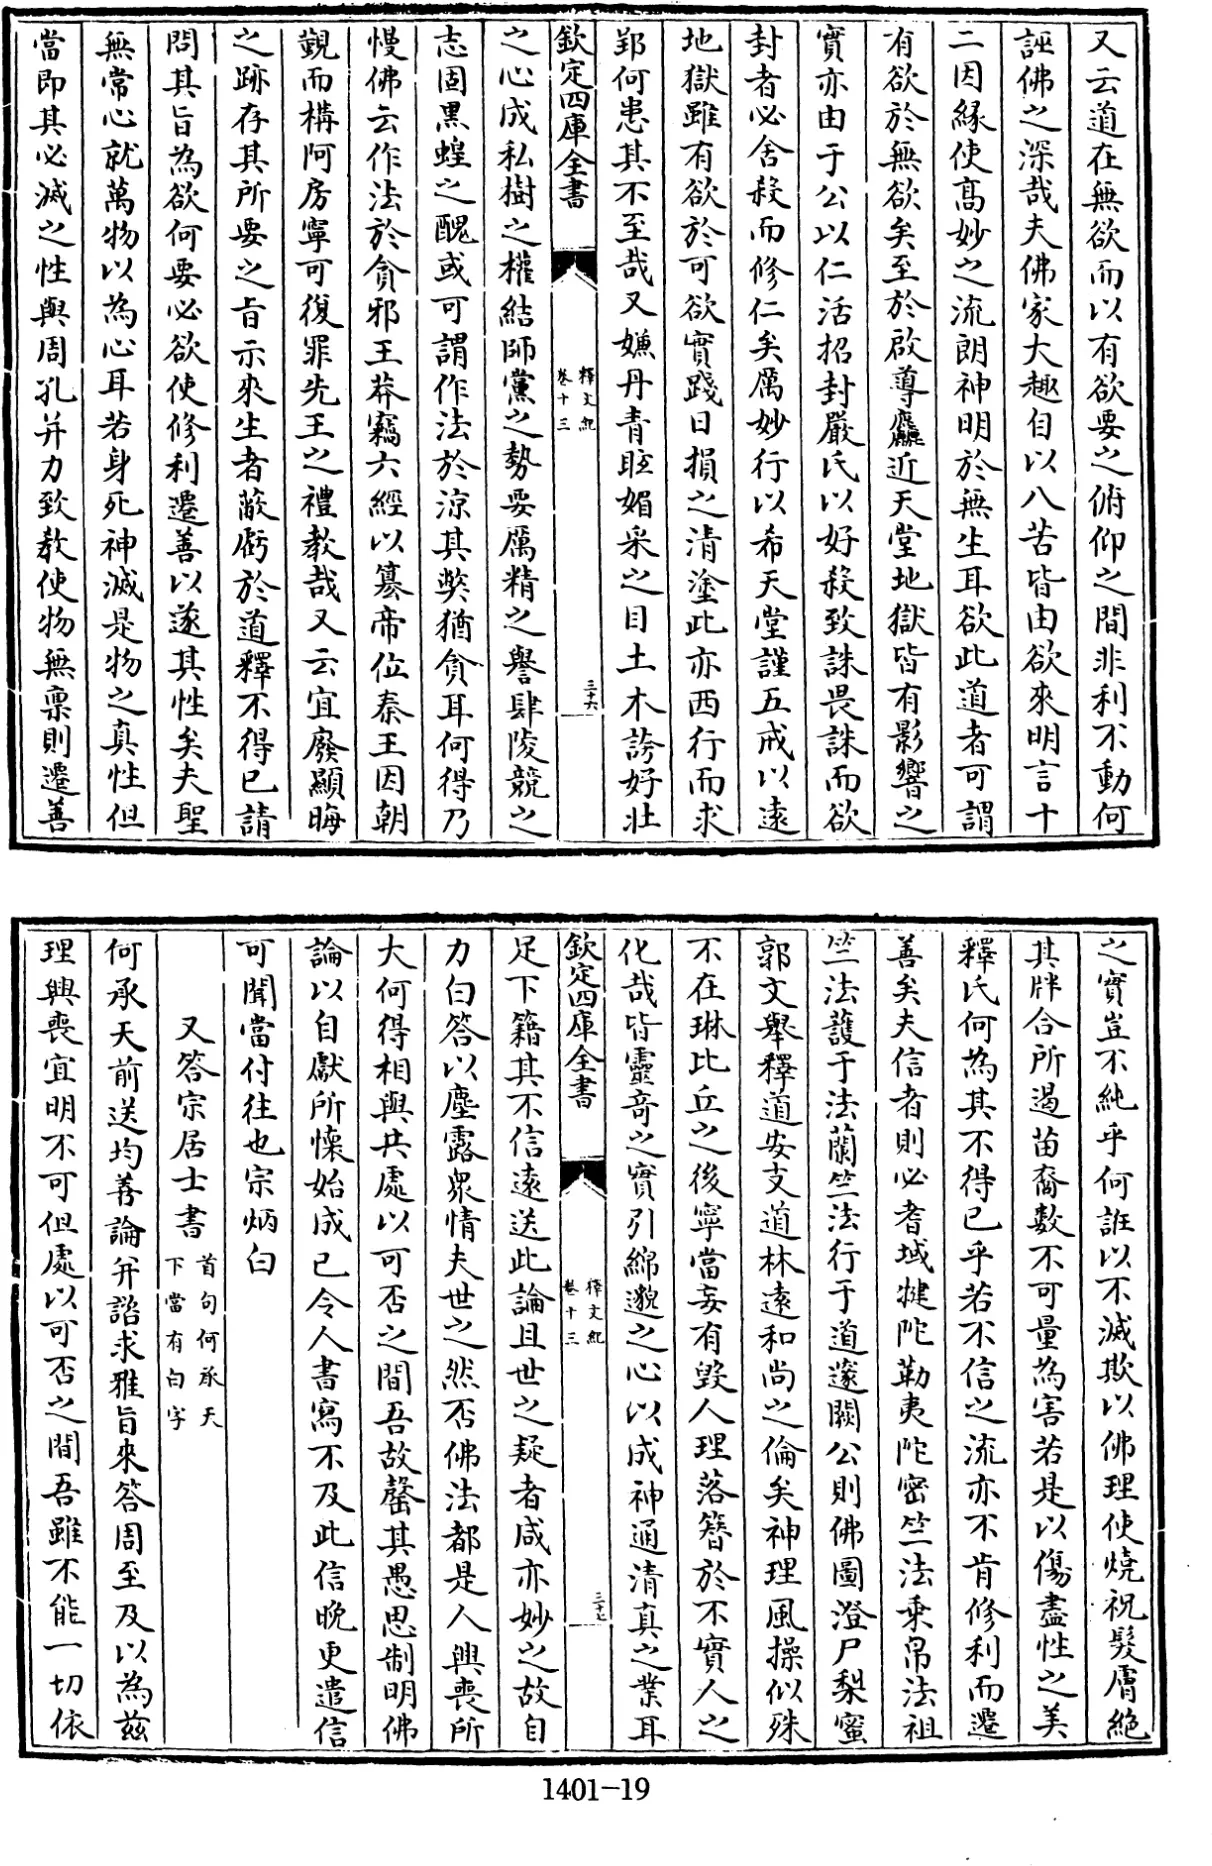 又云道在無欲而以有欲要之俯仰之間非利不動何
誣佛之深哉夫佛家大趣自以八苦皆由欲來明言十
二因緣使髙妙之流朗神明於無生耳欲此道者可謂
有欲於無欲矣至於啟導麤近天堂地獄皆有影響之
實亦由于公以仁活招封嚴氏以好殺致誅畏誅而欲
封者必舍殺而修仁矣厲妙行以希天堂謹五戒以逺
地獄雖有欲於可欲實踐日損之清塗此亦西行而求
郢何患其不至哉又嫌丹青眩媚采之目土木誇好壯
欽定四庫全書
釋文紀
卷十三
三十六
之心成私樹之權結師黨之勢要厲精之譽肆陵競之
志固黒蝗之醜或可謂作法於涼其獘猶貪耳何得乃
慢佛云作法於貪邪王莽竊六經以簒帝位秦王因朝
覲而構阿房寧可復罪先王之禮教哉又云宜廢顯晦
之跡存其所要之旨示來生者蔽虧於道釋不得已請
問其旨為欲何要必欲使修利遷善以遂其性矣夫聖
無常心就萬物以為心耳若身死神滅是物之真性但
當即其必滅之性與周孔并力致教使物無稟則遷善
之實豈不純乎何誑以不滅欺以佛理使燒祝髮膚絶
其胖合所遏苗裔數不可量為害若是以傷盡性之美
釋氏何為其不得已乎若不信之流亦不肯修利而遷
善矣夫信者則必耆域揵陀勒夷陀密竺法乗帛法祖
竺法護于法蘭竺法行于道邃闕公則佛圖澄尸梨蜜
郭文舉釋道安支道林逺和尚之倫矣神理風操似殊
不在琳比丘之後寧當妄有毁人理落簪於不實人之
化哉皆靈竒之實引綿邈之心以成神通清真之業耳
欽定四庫全書
釋文紀
卷十三
三十七
足下籍其不信逺送此論且世之疑者咸亦妙之故自
力白答以塵露衆情夫世之然否佛法都是人興喪所
大何得相與共處以可否之間吾故罄其愚思制明佛
論以自獻所懐始成已令人書寫不及此信晩更遣信
可聞當付往也宗炳白
又答宗居士書首句何承天
下當有白字
何承天前送均善論并諮求雅旨來答周至及以為兹
理興喪宜明不可但處以可否之間吾雖不能一切依
1401-19